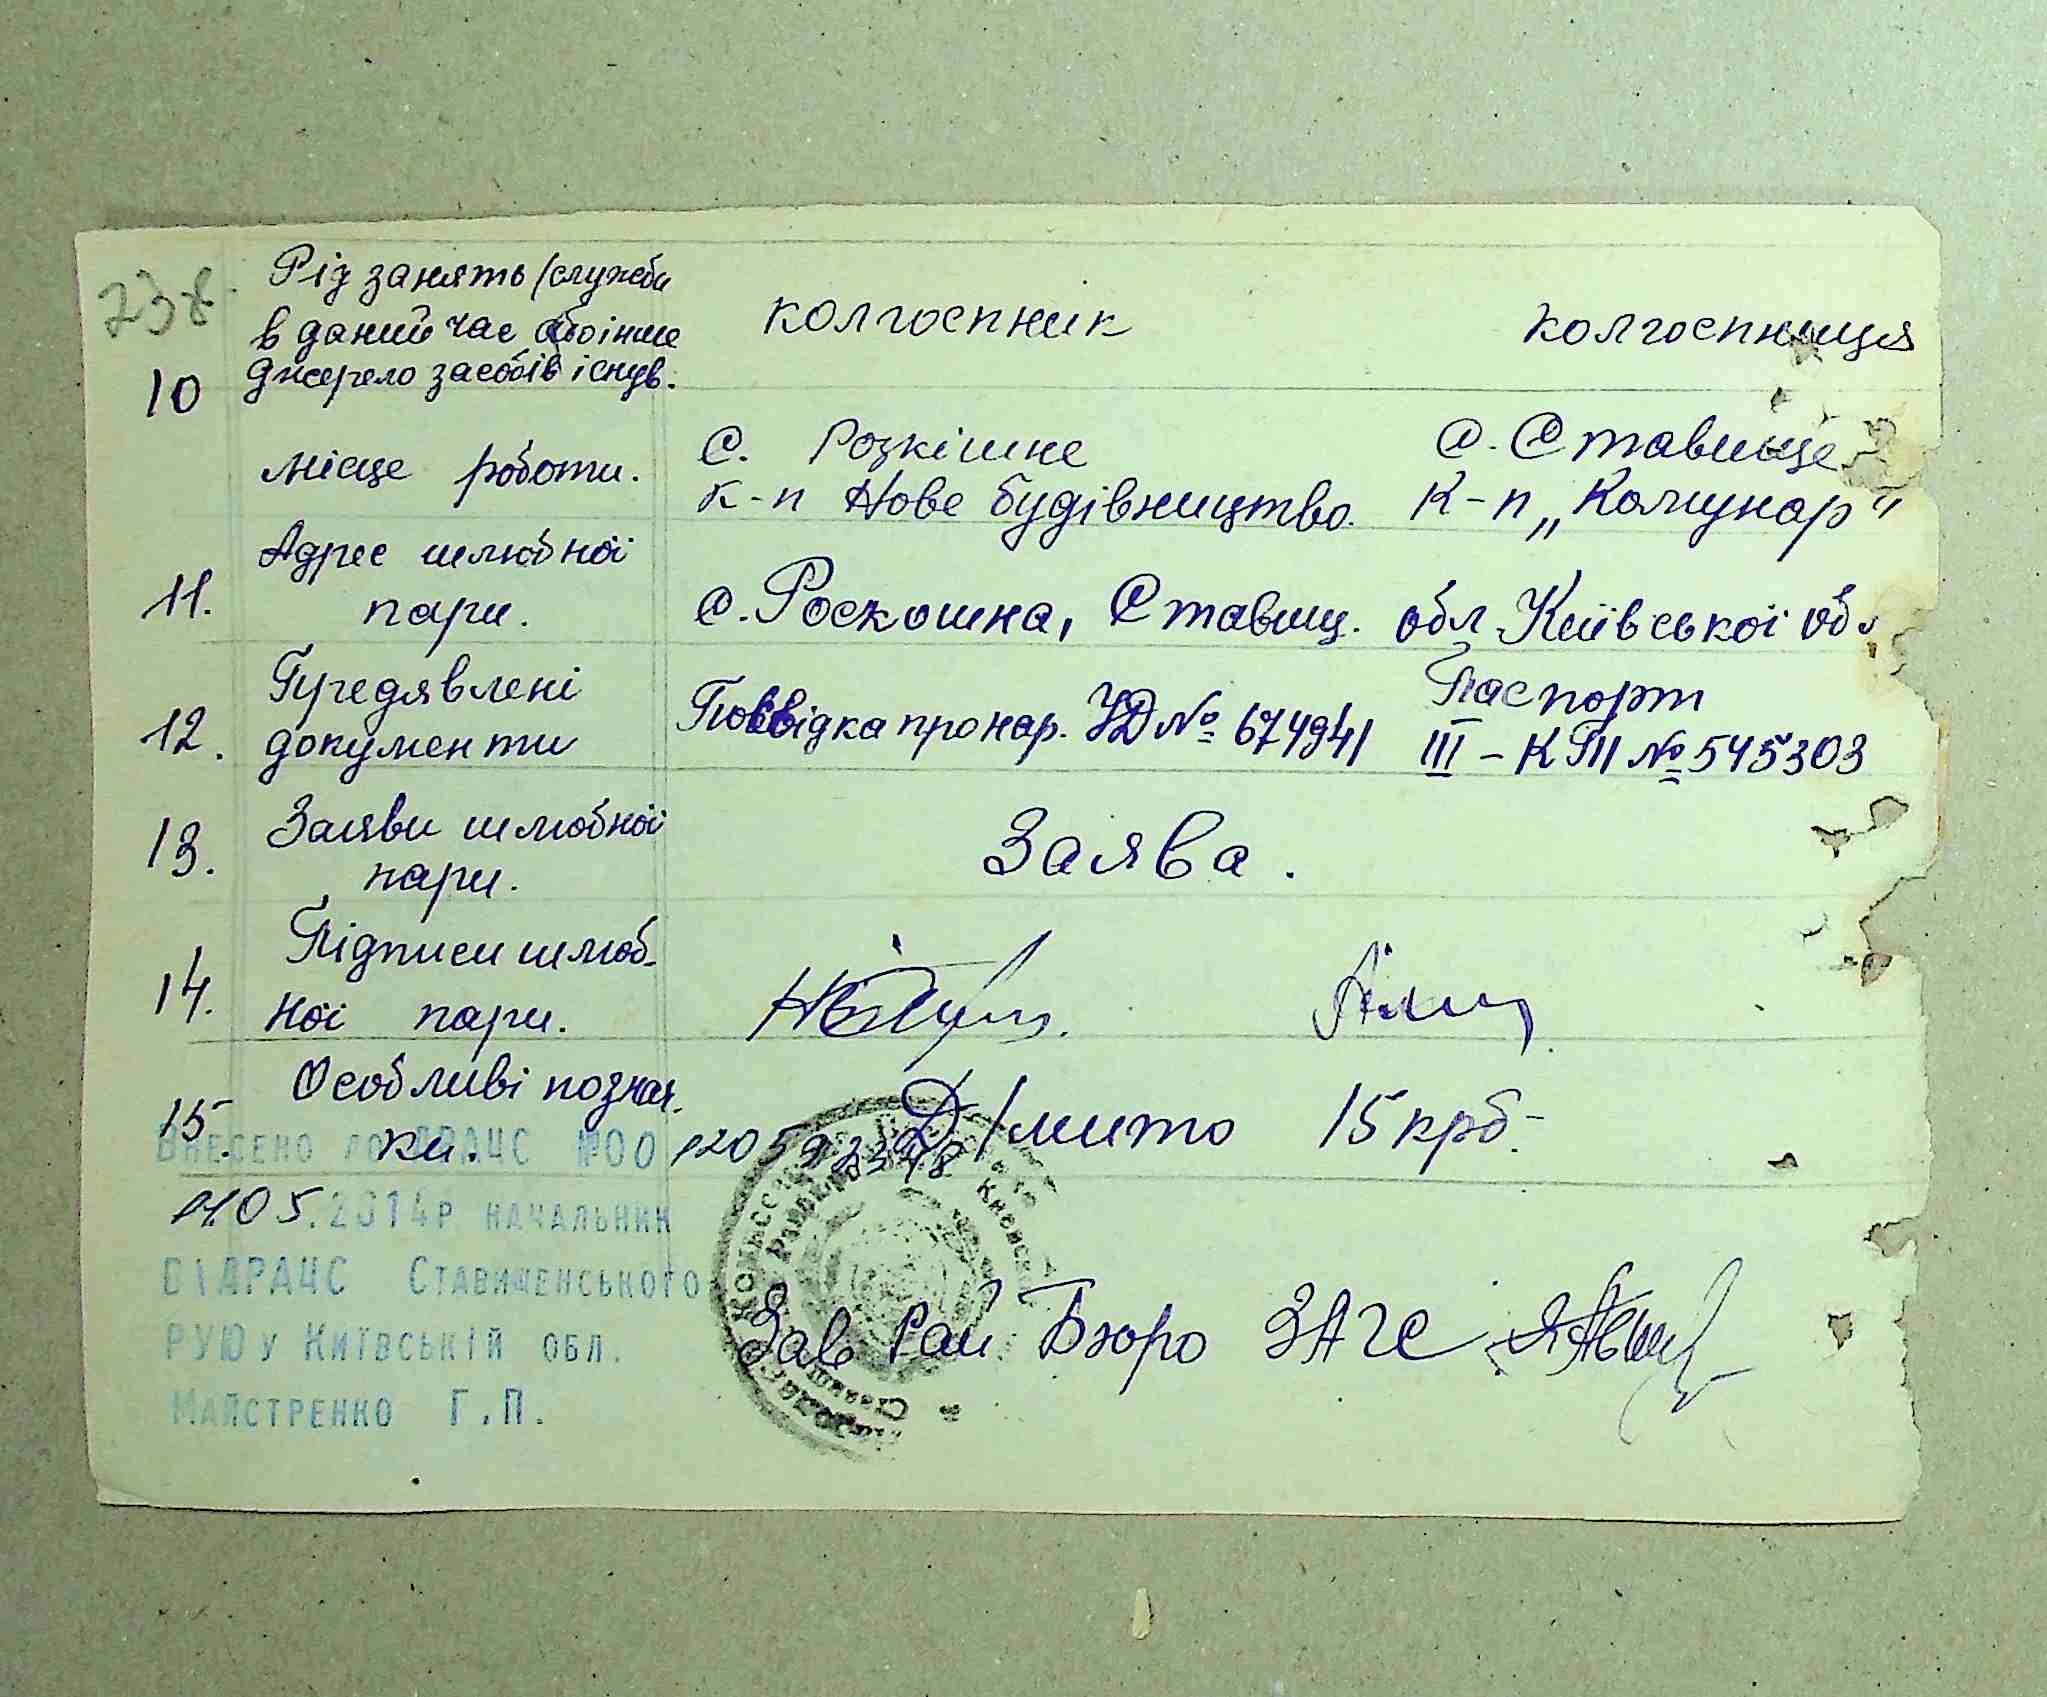 238
10
Рід занять (служби
в даний час або інше
джерело засобів існув.
колгоспник
колгоспниця
місце роботи.
с. Розкішне
с. Ставище
к-п Нове будівництво.
к-п „Комунар"
11.
Адрес шлюбної
пари.
с. Роскошна, Ставищ. обл. Київської об
12.
Предявлені
документи
Посвідка про нар. УД № 674941
Паспорт
III - КТП № 545303
13.
Заяви шлюбної
пари.
Заява.
14.
Підписи шлюб-
ної пари.
15.
Особливі познач.
ки.
Д/мито 15 крб-
Внесено до ДРАЦС №00
14.05.2014р начальник
ВІДРАЦС Ставищенського
РУЮ у Київській обл.
Майстренко Г.П.
Зав Рай Бюро ЗАГС